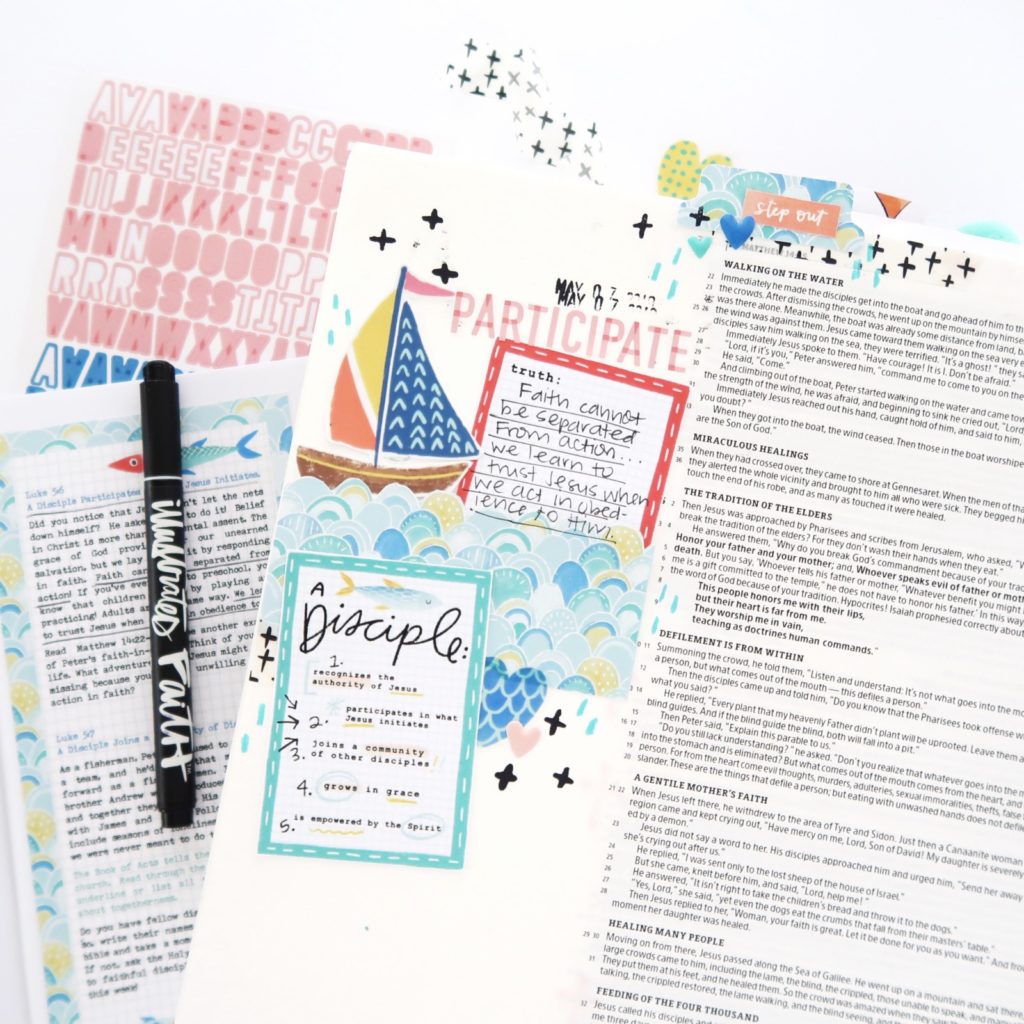 step out
MAY 07 2018
PARTICIPATE
truth:
Faith cannot
be separated
from action...
we learn to
trust Jesus when
we act in obed-
ience to Him.
A
Disciple:
1.
recognizes the
authority of Jesus
2. participates in what
Jesus initiates
3. joins a community
of other disciples!
4. grows in grace
5. is empowered by the Spirit
illustrated FAITH
Luke 5:6
A Disciple Participates Jesus Initiates.
Did you notice that t let the nets
down himself? He aske to do it! Belief
in Christ is more than ental assent. The
grace of God provi our unearned
salvation, but we lay it by responding
in faith. Faith can separated from
action! If you've eve to preschool, yo
know that children by playing a
practicing! Adults a me way. We lea
to trust Jesus when in obedience to
Read Matthew 14:22- another exa
of Peter's faith-in- hink of you
life. What adventure Jesus might
missing because you unwilling
action in faith?
Luke 5:7
A Disciple Joins a of Di
As a fisherman, Pete sed to
a team, and he'd
forward as a fi men.
brother Andrew roduce
and together they His
with James and Follow
include seasons of
we were never meant to do
The Book of Acts tells the
church. Read through the
underline or list all
about togetherness.
Do you have fellow dis
so, write their names
Bible and take a mom
If not, ask the Holy
to faithful discip
this week!
WALKING ON THE WATER
22 Immediately he made the disciples get into the boat and go ahead of him to th
the crowds. After dismissing the crowds, he went up on the mountain by himse
was there alone. Meanwhile, the boat was already some distance from land, ba
the wind was against them. Jesus came toward them walking on the sea very e
disciples saw him walking on the sea, they were terrified. "It's a ghost!" they s
Immediately Jesus spoke to them. "Have courage! It is I. Don't be afraid."
"Lord, if it's you," Peter answered him, "command me to come to you on the
He said, "Come."
And climbing out of the boat, Peter started walking on the water and came tow
the strength of the wind, he was afraid, and beginning to sink he cried out, "Lord
Immediately Jesus reached out his hand, caught hold of him, and said to him,
you doubt?"
When they got into the boat, the wind ceased. Then those in the boat worshipe
are the Son of God."
MIRACULOUS HEALINGS
When they had crossed over, they came to shore at Gennesaret. When the men of tha
they alerted the whole vicinity and brought to him all who were sick. They begged hi
touch the end of his robe, and as many as touched it were healed.
THE TRADITION OF THE ELDERS
Then Jesus was approached by Pharisees and scribes from Jerusalem, who asked, "W
break the tradition of the elders? For they don't wash their hands when they eat."
He answered them, "Why do you break God's commandment because of your trad
Honor your father and your mother; and, Whoever speaks evil of father or moth
death. But you say, 'Whoever tells his father or mother, "Whatever benefit you might
me is a gift committed to the temple," he does not have to honor his father.' In this way
the word of God because of your tradition. Hypocrites! Isaiah prophesied correctly about
This people honors me with their lips,
but their heart is far from me.
They worship me in vain,
teaching as doctrines human commands."
DEFILEMENT IS FROM WITHIN
Summoning the crowd, he told them, "Listen and understand: It's not what goes into the mo
a person, but what comes out of the mouth — this defiles a person."
Then the disciples came up and told him, "Do you know that the Pharisees took offense w
what you said?"
He replied, "Every plant that my heavenly Father didn't plant will be uprooted. Leave them a
blind guides. And if the blind guide the blind, both will fall into a pit."
Then Peter said, "Explain this parable to us."
"Do you still lack understanding?" he asked. "Don't you realize that whatever goes into the m
into the stomach and is eliminated? But what comes out of the mouth comes from the heart, and
person. For from the heart come evil thoughts, murders, adulteries, sexual immoralities, thefts, false
slander. These are the things that defile a person; but eating with unwashed hands does not defile
A GENTILE MOTHER'S FAITH
When Jesus left there, he withdrew to the area of Tyre and Sidon. Just then a Canaanite woman
region came and kept crying out, "Have mercy on me, Lord, Son of David! My daughter is severely
ed by a demon."
Jesus did not say a word to her. His disciples approached him and urged him, "Send her away
she's crying out after us."
He replied, "I was sent only to the lost sheep of the house of Israel."
But she came, knelt before him, and said, "Lord, help me!"
He answered, "It isn't right to take the children's bread and throw it to the dogs."
"Yes, Lord," she said, "yet even the dogs eat the crumbs that fall from their masters' table."
Then Jesus replied to her, "Woman, your faith is great. Let it be done for you as you want." And from
moment her daughter was healed.
HEALING MANY PEOPLE
Moving on from there, Jesus passed along the Sea of Galilee. He went up on a mountain and sat there
large crowds came to him, including the lame, the blind, the crippled, those unable to speak, and many
They put them at his feet, and he healed them. So the crowd was amazed when they saw th
talking, the crippled restored, the lame walking, and the blind seeing, and
FEEDING OF THE FOUR THOUSAND
Jesus called his disciples and
me three days